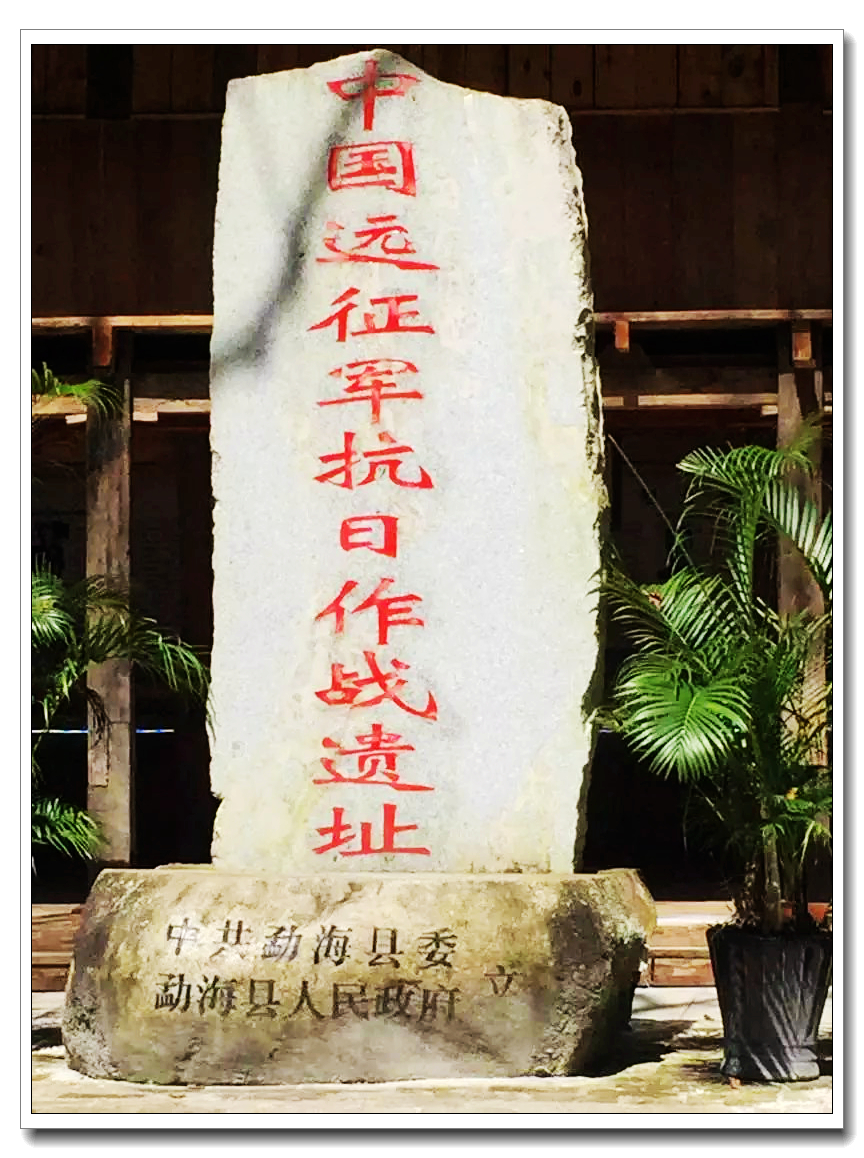 中国远征军抗日作战遗址
中共勐海县委
勐海县人民政府
立